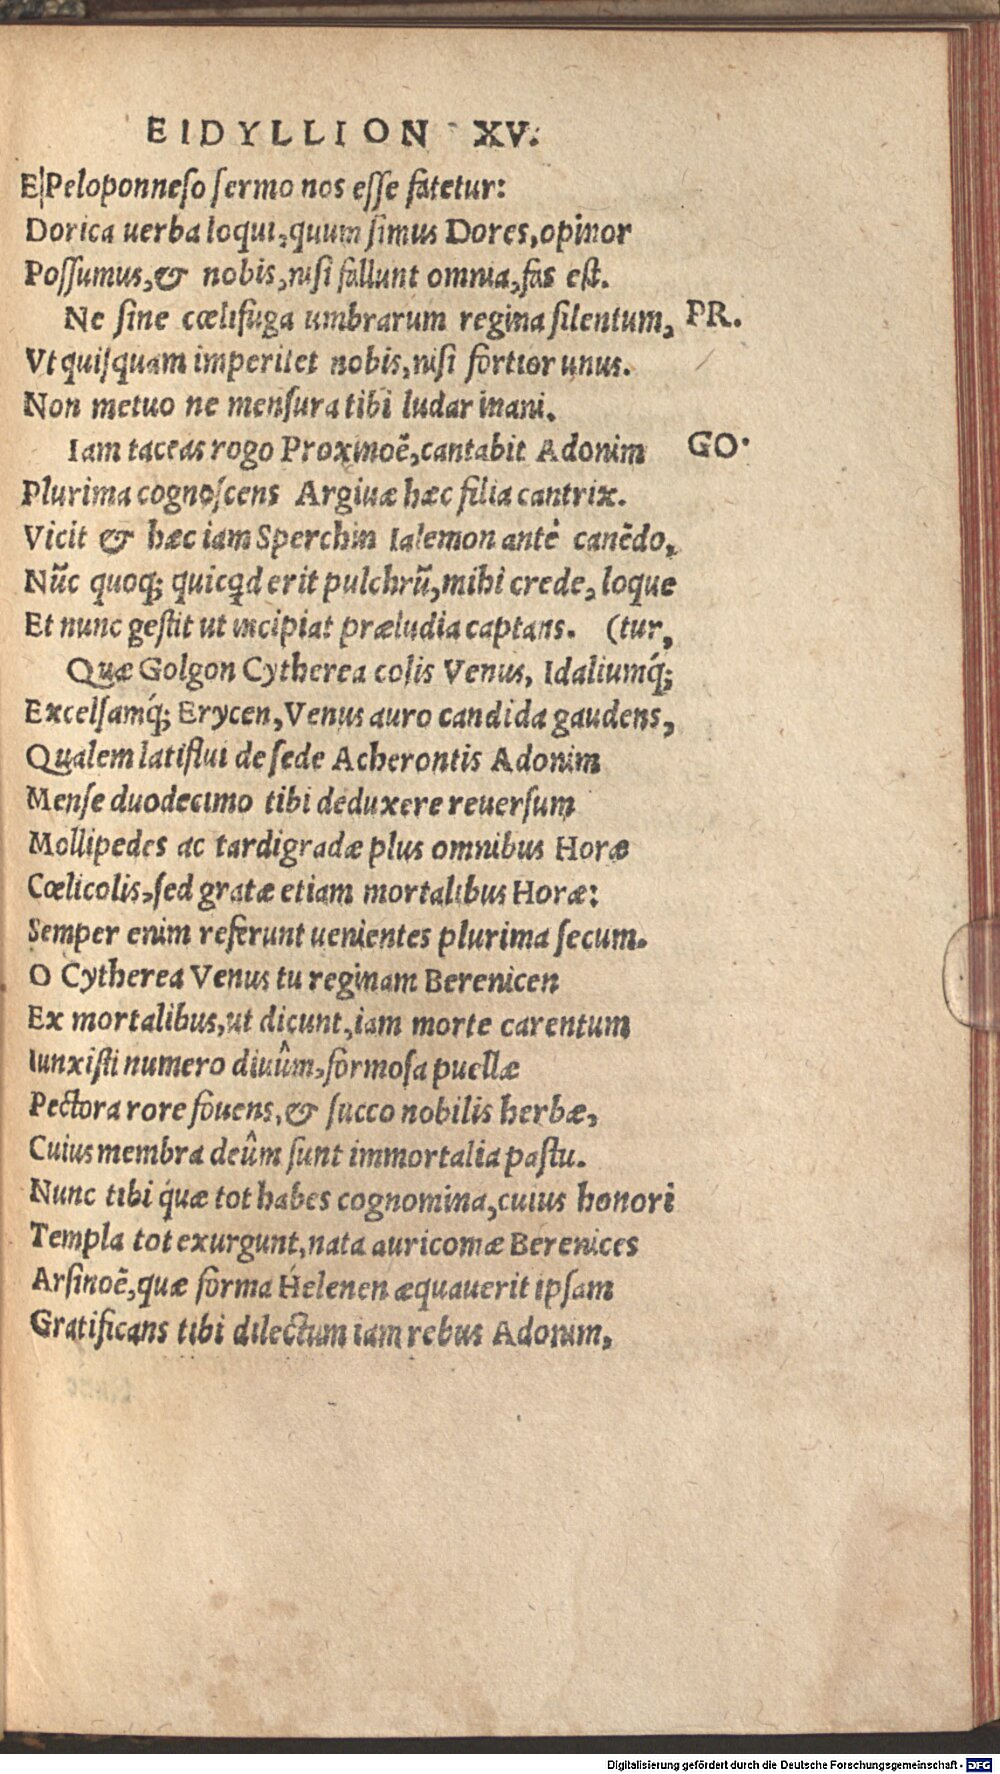 EIDYLLION XV.
E Peloponneſo ſermo nos eſſe fatetur:
Dorica uerba loqui, quum ſimus Dores, opinor
Poſſumus, & nobis, niſi fallunt omnia, fas eſt.
Ne ſine cœlifuga umbrarum regina ſilentum, PR.
Vt quiſquam imperitet nobis, niſi fortior unus.
Non metuo ne menſura tibi ludar inani.
Iam taceas rogo Proxinoë, cantabit Adonim GO.
Plurima cognoſcens Argiuæ hæc filia cantrix.
Vicit & hæc iam Sperchin Ialemon antè canēdo,
Nūc quoq; quicqd erit pulchrū, mihi crede, loque
Et nunc geſtit ut incipiat præludia captans. (tur,
Quæ Golgon Cytherea colis Venus, Idaliumq́;
Excelſamq́; Erycen, Venus auro candida gaudens,
Qualem latiflui de ſede Acherontis Adonim
Menſe duodecimo tibi deduxere reuerſum
Mollipedes ac tardigradæ plus omnibus Horæ
Cœlicolis, ſed gratæ etiam mortalibus Horæ:
Semper enim referunt uenientes plurima ſecum.
O Cytherea Venus tu reginam Berenicen
Ex mortalibus, ut dicunt, iam morte carentum
Iunxiſti numero diuûm, formoſa puellæ
Pectora rore fouens, & ſucco nobilis herbæ,
Cuius membra deûm ſunt immortalia paſtu.
Nunc tibi quæ tot habes cognomina, cuius honori
Templa tot exurgunt, nata auricomæ Berenices
Arſinoë, quæ forma Helenen æquauerit ipſam
Gratificans tibi dilectum iam rebus Adonim,
Digitalisierung gefördert durch die Deutsche Forschungsgemeinschaft - DFG